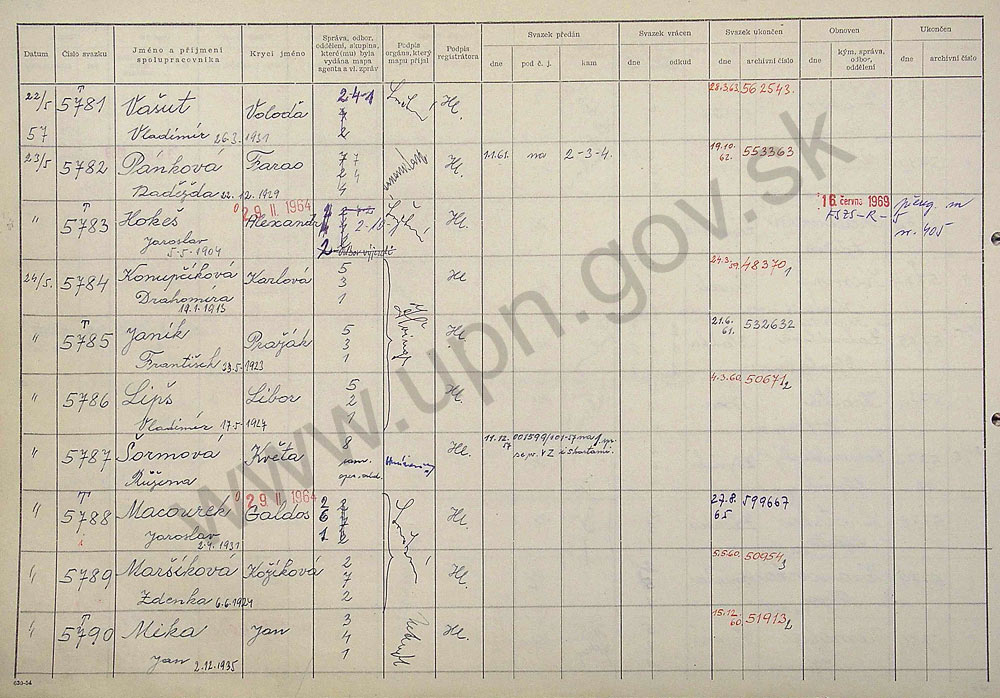 Datum
Číslo svazku
Jméno a příjmení spolupracovníka
Krycí jméno
Správa, odbor, oddělení, skupina, které(mu) byla vydána mapa agenta a vl. zpráv
Podpis orgána, který mapu přijal
Podpis registrátora
Svazek předán
dne
pod č. j.
kam
Svazek vrácen
dne
odkud
Svazek ukončen
dne
archivní číslo
Obnoven
dne
kým, správa, odbor, oddělení
Ukončen
dne
archivní číslo
22/5 5781 Vašut Voloďa 2-4-1 Hl. 28.3.63 562543.
57 Vladimír 26.3.1931 2
23/5 5782 Pánková Farao 7 7 Hl. 11.61. na 2-3-4. 19.10. 62. 553363
Naděžda 22.12.1929 4
" 5783 Hokeš 29 II 1964 Alexandr Hl. 16. června 1969
Jaroslav FSZS-R-5 n. 405
5-5-1904 2 - odbor výjezdč
24/5. 5784 Konupčíková Karlová 5 Hl. 24.3. 59. 48370/1
Drahomíra 3
19.1.1915 1
" 5785 Janík Pražák 5 Hl. 21.6. 61. 532632
František 23.5.1923 3
1
" 5786 Lipš Libor 5 Hl. 4.3.60 50671/2
Vladimír 17.5.1927 2
1
" 5787 Šormová Květa 8 Hl. 11.12. 57
Růžena sam. oper. odd.
" 5788 Macourek 29 II 1964 Galdos 2 Hl. 27.8. 65 599667
Jaroslav 2.4.1931 6
1
" 5789 Maršíková Kožíková 2 Hl. 5.5.60. 50954/3
Zdenka 6.6.1924 7
2
" 5790 Mika Jan 3 Hl. 15.12. 60. 51913/2
Jan 2.12.1935 4
1
630-54
www.upn.gov.sk